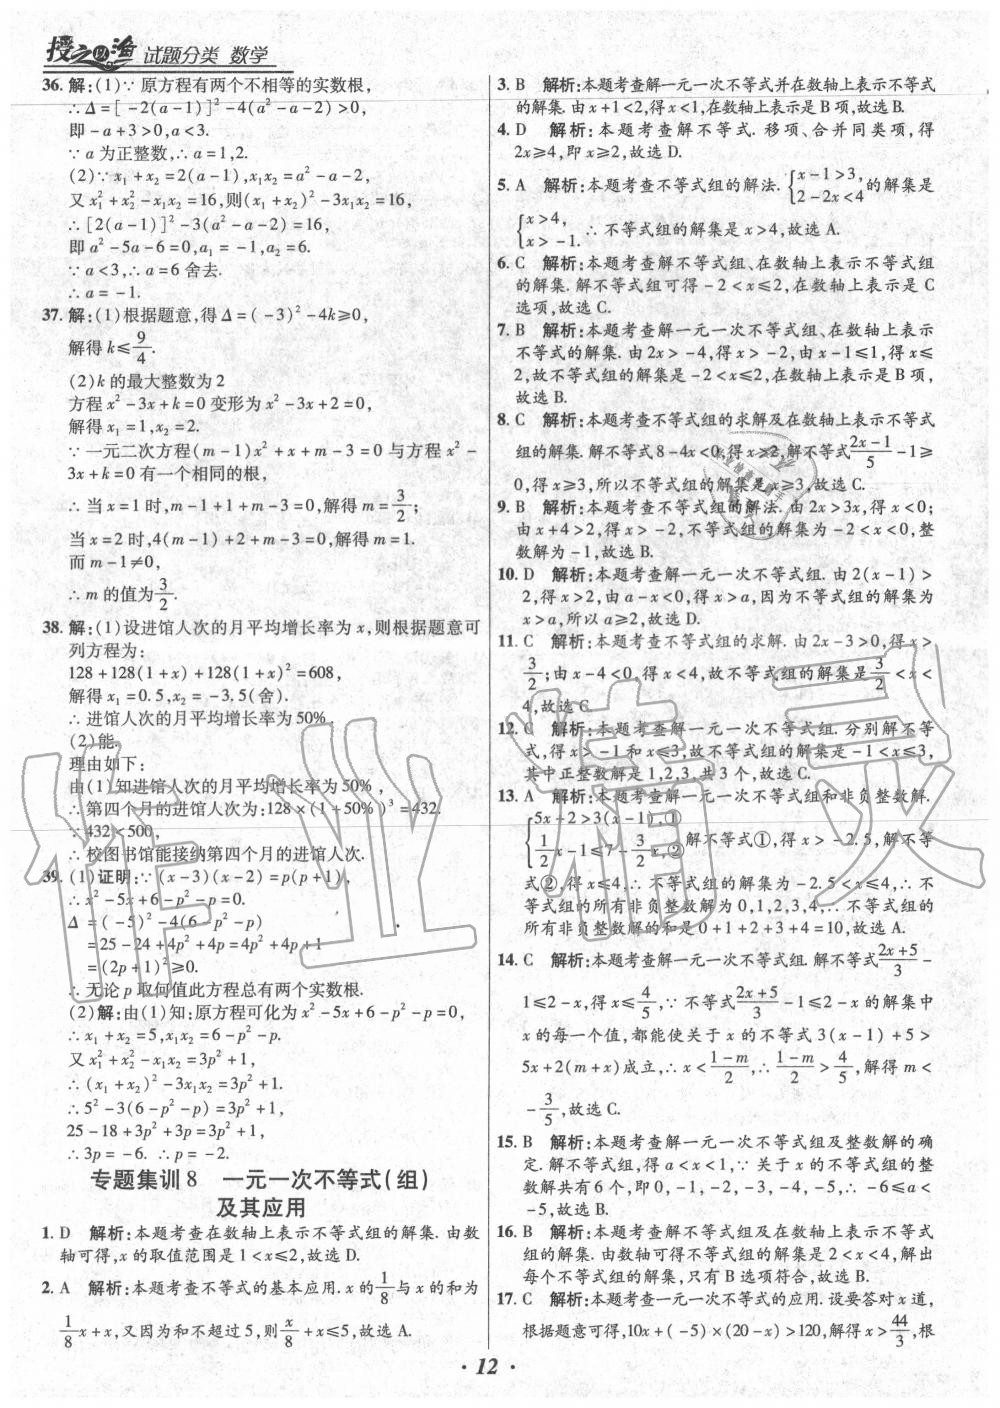 授之以渔 试题分类 数学
36. 解:(1)∵原方程有两个不相等的实数根,
∴Δ=[-2(a-1)]²-4(a²-a-2)>0,
即-a+3>0,a<3.
∵a为正整数,∴a=1,2.
(2)∵x₁+x₂=2(a-1),x₁x₂=a²-a-2,
又x₁²+x₂²-x₁x₂=16,则(x₁+x₂)²-3x₁x₂=16,
∴[2(a-1)]²-3(a²-a-2)=16,
即a²-5a-6=0,a₁=-1,a₂=6.
∵a<3,∴a=6舍去.
∴a=-1.
37. 解:(1)根据题意,得Δ=(-3)²-4k≥0,
解得k≤9/4.
(2)k的最大整数为2
方程x²-3x+k=0变形为x²-3x+2=0,
解得x₁=1,x₂=2.
∵一元二次方程(m-1)x²+x+m-3=0与方程x²-
3x+k=0有一个相同的根,
∴当x=1时,m-1+1+m-3=0,解得m=3/2;
当x=2时,4(m-1)+2+m-3=0,解得m=1.
而m-1≠0,
∴m的值为3/2.
38. 解:(1)设进馆人次的月平均增长率为x,则根据题意可
列方程为:
128+128(1+x)+128(1+x)²=608,
解得x₁=0.5,x₂=-3.5(舍).
∴进馆人次的月平均增长率为50%.
(2)能.
理由如下:
由(1)知进馆人次的月平均增长率为50%,
∴第四个月的进馆人次为:128×(1+50%)³=432.
∵432<500,
∴校图书馆能接纳第四个月的进馆人次.
39. (1)证明:∵(x-3)(x-2)=p(p+1),
∴x²-5x+6-p²-p=0.
Δ=(-5)²-4(6-p²-p)
=25-24+4p²+4p=4p²+4p+1
=(2p+1)²≥0.
∴无论p取何值此方程总有两个实数根.
(2)解:由(1)知:原方程可化为x²-5x+6-p²-p=0,
∴x₁+x₂=5,x₁x₂=6-p²-p.
又x₁²+x₂²-x₁x₂=3p²+1,
∴(x₁+x₂)²-3x₁x₂=3p²+1.
∴5²-3(6-p²-p)=3p²+1,
25-18+3p²+3p=3p²+1,
∴3p=-6. ∴p=-2.
专题集训8 一元一次不等式(组)
及其应用
1. D 解析:本题考查在数轴上表示不等式组的解集.由数
轴可得,x的取值范围是1<x≤2,故选D.
2. A 解析:本题考查不等式的基本应用.x的1/8与x的和为
1/8x+x,又因为和不超过5,则x/8+x≤5,故选A.
3. B 解析:本题考查解一元一次不等式并在数轴上表示不等式
的解集.由x+1<2,得x<1,在数轴上表示是B项,故选B.
4. D 解析:本题考查解不等式.移项、合并同类项,得
2x≥4,即x≥2,故选D.
5. A 解析:本题考查不等式组的解法.{x-1>3, 2-2x<4的解集是
{x>4, x>-1. ∴不等式组的解集是x>4,故选A.
6. C 解析:本题考查解不等式组、在数轴上表示不等式组
的解集.解不等式组可得-2<x≤2,在数轴上表示是C
选项,故选C.
7. B 解析:本题考查解一元一次不等式组、在数轴上表示
不等式的解集.由2x>-4,得x>-2,由x-1≤1,得x≤
2,故不等式组的解集是-2<x≤2,在数轴上表示为B项,
故选B.
8. C 解析:本题考查不等式组的求解及在数轴上表示不等式
组的解集.解不等式8-4x<0,得x>2,解不等式(2x-1)/5-1≥
0,得x≥3,所以不等式组的解集是x≥3,故选C.
9. B 解析:本题考查不等式组的解法.由2x>3x,得x<0;
由x+4>2,得x>-2,不等式组的解集为-2<x<0,整
数解为-1,故选B.
10. D 解析:本题考查解一元一次不等式组.由2(x-1)>
2,得x>2,由a-x<0,得x>a,因为不等式组的解集为
x>a,所以a≥2,故选D.
11. C 解析:本题考查不等式组的求解.由2x-3>0,得x>
3/2;由x-4<0,得x<4,故不等式组的解集是3/2<x<
4,故选C.
12. C 解析:本题考查解一元一次不等式组.分别解不等
式,得x>-1和x≤3,故不等式组的解集是-1<x≤3,
其中正整数解是1,2,3.共3个,故选C.
13. A 解析:本题考查解一元一次不等式组和非负整数解.
{5x-2>3(x-1),① 1/2x-1≤7-3/2x,② 解不等式①,得x>-2.5,解不等
式②,得x≤4,∴不等式组的解集为-2.5<x≤4,∴不
等式组的所有非负整数解为0,1,2,3,4,∴不等式组的
所有非负整数解的和是0+1+2+3+4=10,故选A.
14. C 解析:本题考查解一元一次不等式组.解不等式(2x+5)/3-
1≤2-x,得x≤4/5,∵不等式(2x+5)/3-1≤2-x的解集中
x的每一个值,都能使关于x的不等式3(x-1)+5>
5x+2(m+x)成立,∴x<(1-m)/2,∴(1-m)/2>4/5,解得m<
-3/5,故选C.
15. B 解析:本题考查解一元一次不等式组及整数解的确
定.解不等式组,得a<x<1,∵关于x的不等式组的整
数解共有6个,即0,-1,-2,-3,-4,-5,∴-6≤a<
-5,故选B.
16. B 解析:本题考查解不等式组及在数轴上表示不等式
组的解集.由数轴可得不等式组的解集是2<x<4,解出
每个不等式组的解集,只有B选项符合,故选B.
17. C 解析:本题考查一元一次不等式的应用.设要答对x道,
根据题意可得,10x+(-5)×(20-x)>120,解得x>44/3,根
·12·
作业精灵